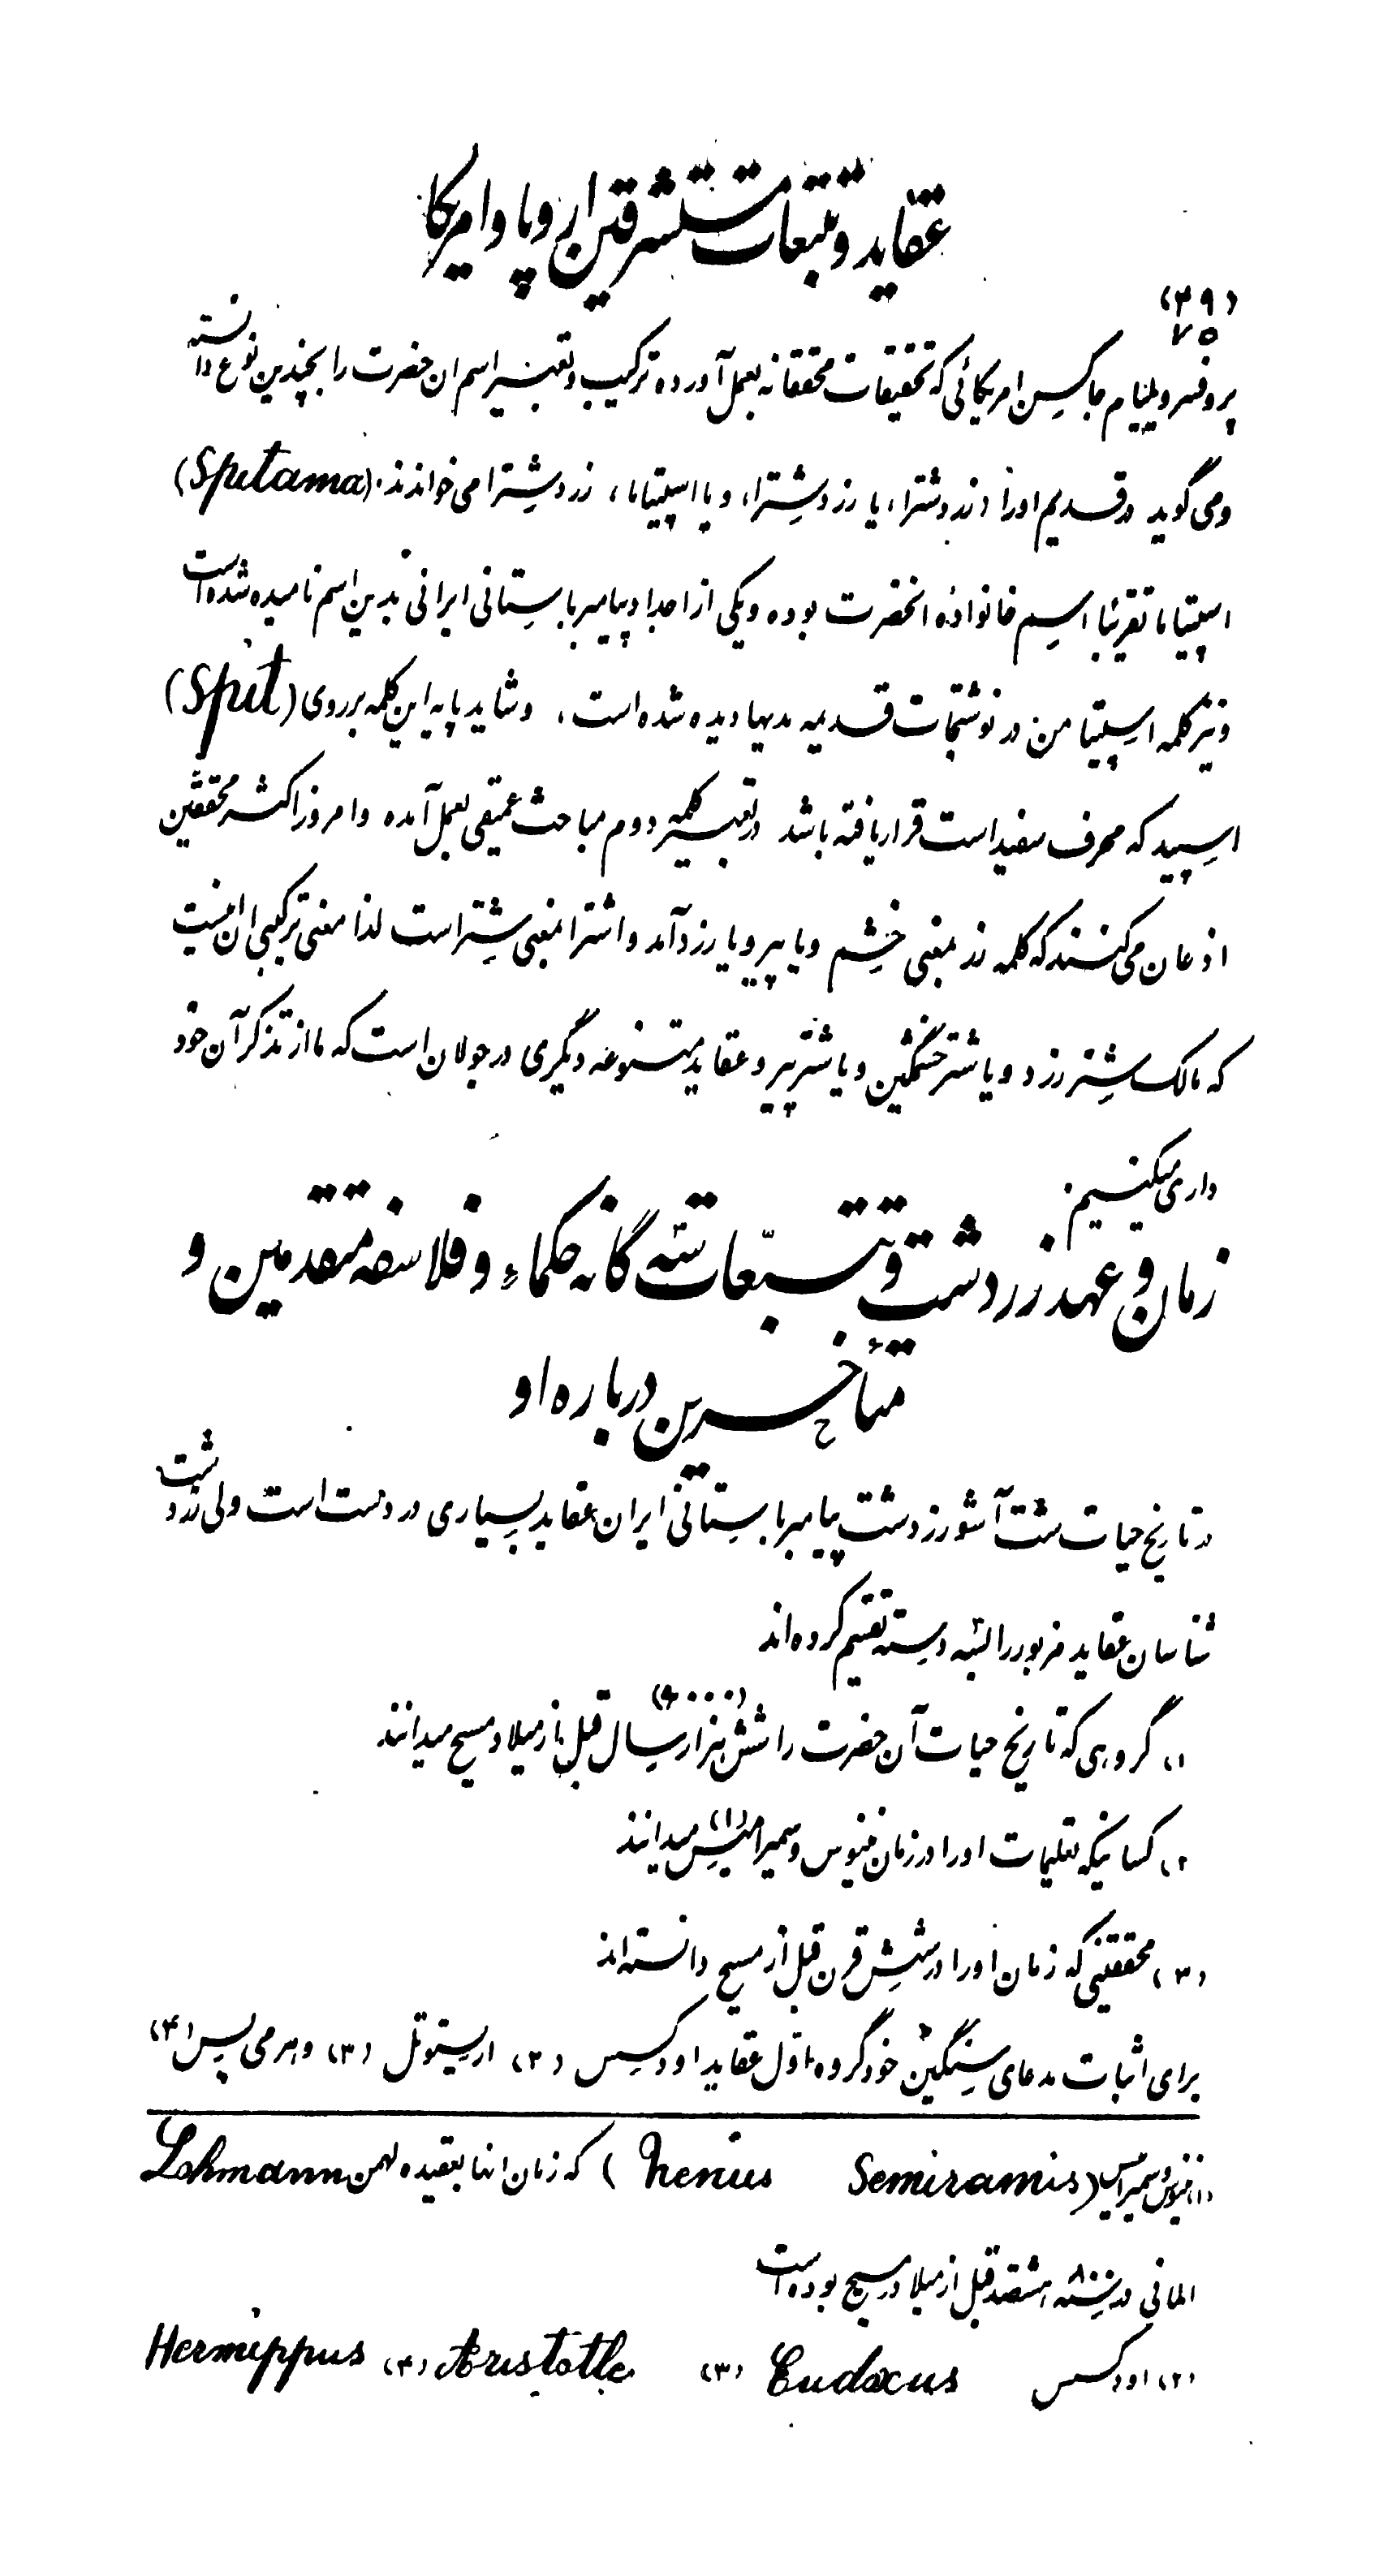 عقاید و تتبعات مستشرقین اروپا و امریکا
(۳۹)
۷۵
پروفسر ویلیام جاکسن امریکائی که تحقیقات محققانه بعمل آورده ترکیب و تعبیر اسم ان حضرت را بچندین نوع دانسته
و می گوید در قدیم اورا (زردشترا) یا (رزدشترا) و یا (اسپیتاما) زردشترا می خواندند. (Spitama)
اسپیتاما تقریبا اسم خانواده انحضرت بوده و یکی از اجداد پیامبر باستانی ایرانی بدین اسم نامیده شده است
و نیز کلمه اسپیتامن در نوشتجات قدیمه مدیها دیده شده است، و شاید پایه این کلمه بر روی (Spit)
اسپید که محرف سفید است قرار یافته باشد در تعبیر کلمه دوم مباحث عمیقی بعمل آمده و امروز اکثر محققین
اذعان می کنند که کلمه زر بمعنی خشم و یا پیر و یا رزد آمد و اشترا بمعنی شتر است لذا معنی ترکیبی ان اینست
که مالک شتر رزد و یا شتر خشمگین و یا شتر پیر و عقاید متنوعه دیگری در جولان است که ما از تذکر آن خود
داری میکنیم.
زمان و عهد زردشت و تتبعات سه گانه حکماء و فلاسفه متقدمین و
متأخرین درباره او
در تاریخ حیات شت آشو رزدشت پیامبر باستانی ایران عقاید بسیاری در دست است ولی زردشت
شناسان عقاید مزبور را بسه دسته تقسیم کرده اند
(۱) گروهی که تاریخ حیات آن حضرت را شش هزار (۶۰۰۰) سال قبل از میلاد مسیح میدانند
(۲) کسانیکه تعلیمات اورا در زمان نینوس و سمیرامیس (۱) میدانند
(۳) محققینی که زمان اورا در شش قرن قبل از مسیح دانسته اند
برای اثبات مدعای سنگین خود گروه اول عقاید اودکسس (۲) اریستوتل (۳) و هرمی پس (۴)
(۱) نینوس و سمیرامیس (Semiramis Nenus) که زمان انها بعقیده لهمن Lohmann
المانی در سنه ۸۰۰ هشتصد قبل از میلاد مسیح بوده است
(۲) اودکسس Eudoxus (۳) Aristotle (۴) Hermippus